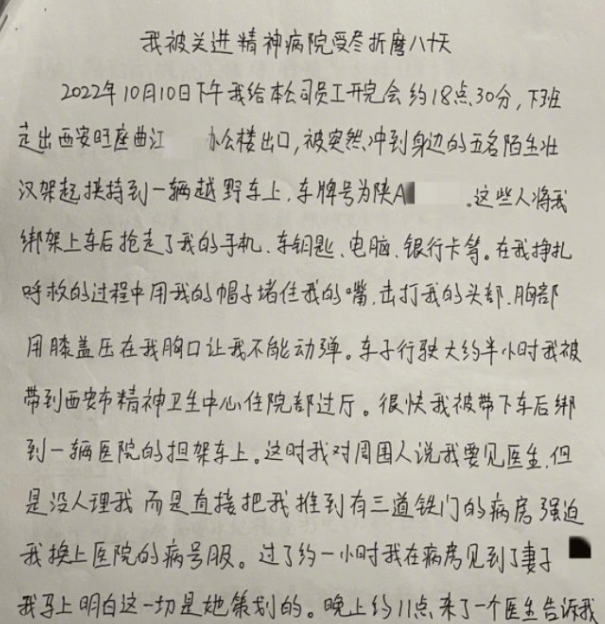 我被关进精神病院受尽折磨八十天
2022年10月10日下午我给本公司员工开完会约18点30分,下班
走出西安旺座曲江 办公楼出口,被突然冲到身边的五名陌生壮
汉架起挟持到一辆越野车上,车牌号为陕A 。这些人将我
绑架上车后抢走了我的手机、车钥匙、电脑、银行卡等。在我挣扎
呼救的过程中用我的帽子堵住我的嘴,击打我的头部、胸部
用膝盖压在我胸口让我不能动弹。车子行驶大约半小时我被
带到西安市精神卫生中心住院部过厅。很快我被带下车后绑
到一辆医院的担架车上。这时我对周围人说我要见医生,但
是没人理我而是直接把我推到有三道铁门的病房强迫
我换上医院的病号服。过了约一小时我在病房见到了妻子
我马上明白这一切是她策划的。晚上约11点来了一个医生告诉我